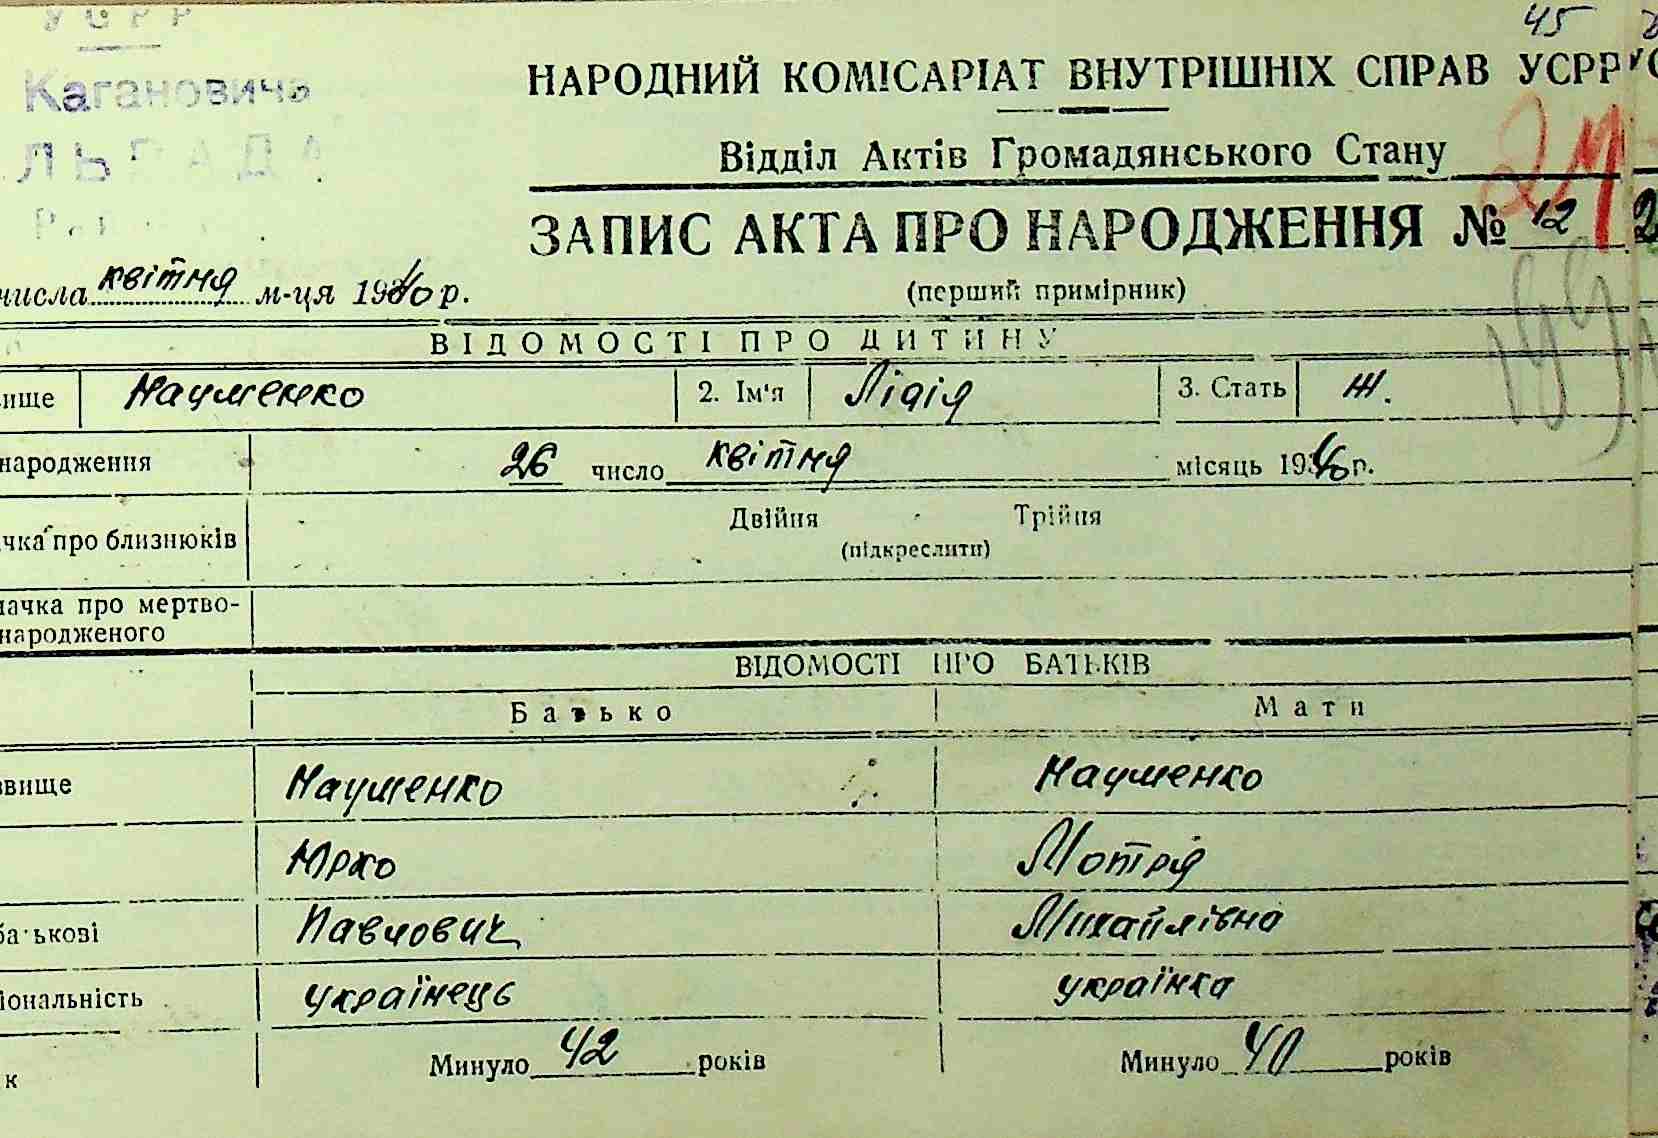 45
УСРР
Кагановича
НАРОДНИЙ КОМІСАРІАТ ВНУТРІШНІХ СПРАВ УСРР
ЛЬРАДА
Відділ Актів Громадянського Стану
ЗАПИС АКТА ПРО НАРОДЖЕННЯ № 12
числа квітня м-ця 1940 р.
(перший примірник)
ВІДОМОСТІ ПРО ДИТИНУ
вище Науменко 2. Ім'я Лідія 3. Стать ж.
народження 26 число квітня місяць 1940 р.
чка про близнюків Двійня Трійня
(підкреслити)
начка про мертво-
народженого
ВІДОМОСТІ ПРО БАТЬКІВ
Батько Мати
звище Науменко Науменко
Юрко Мотря
батькові Павлович Михайлівна
іональність українець українка
к Минуло 42 років Минуло 40 років